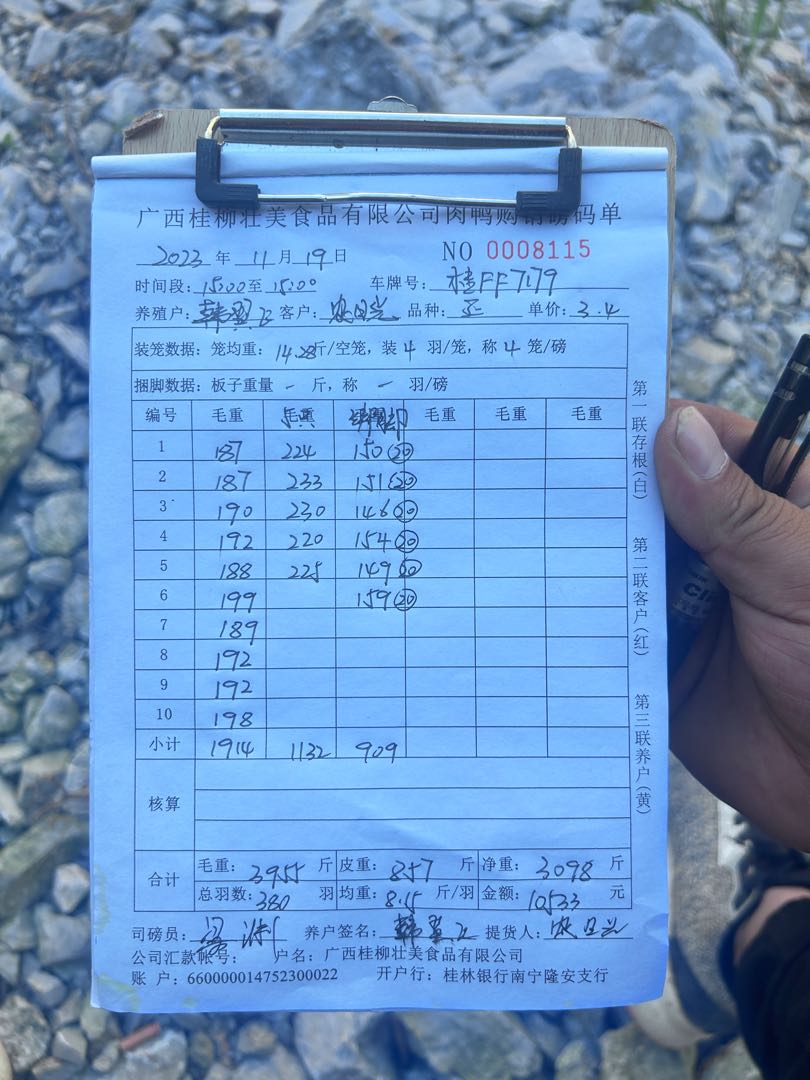 广西桂柳壮美食品有限公司肉鸭购销磅码单
2023 年 11 月 19 日 NO 0008115
时间段: 15:00 至 15:00 车牌号: 桂FF7179
养殖户: 韩 客户: 农日兴 品种: 正 单价: 3.4
装笼数据: 笼均重: 14.28 斤/空笼, 装 4 羽/笼, 称 4 笼/磅
捆脚数据: 板子重量 - 斤, 称 - 羽/磅
编号 毛重 毛重 毛重 毛重 毛重
1 187 224 150 20
2 187 233 151 20
3 190 230 146 20
4 192 220 154 20
5 188 225 149 20
6 199 159 20
7 189
8 192
9 192
10 198
小计 1914 1132 909
核算
合计 毛重: 3955 斤 皮重: 857 斤 净重: 3098 斤
总羽数: 380 羽 均重: 8.15 斤/羽 金额: 10533 元
司磅员: 养户签名: 韩 提货人: 农日兴
公司汇款帐号: 户名: 广西桂柳壮美食品有限公司
账 户: 660000014752300022 开户行: 桂林银行南宁隆安支行
第一联存根(白) 第二联客户(红) 第三联养户(黄)